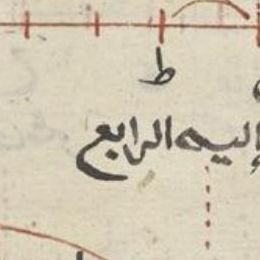 ط
إليه الرابع